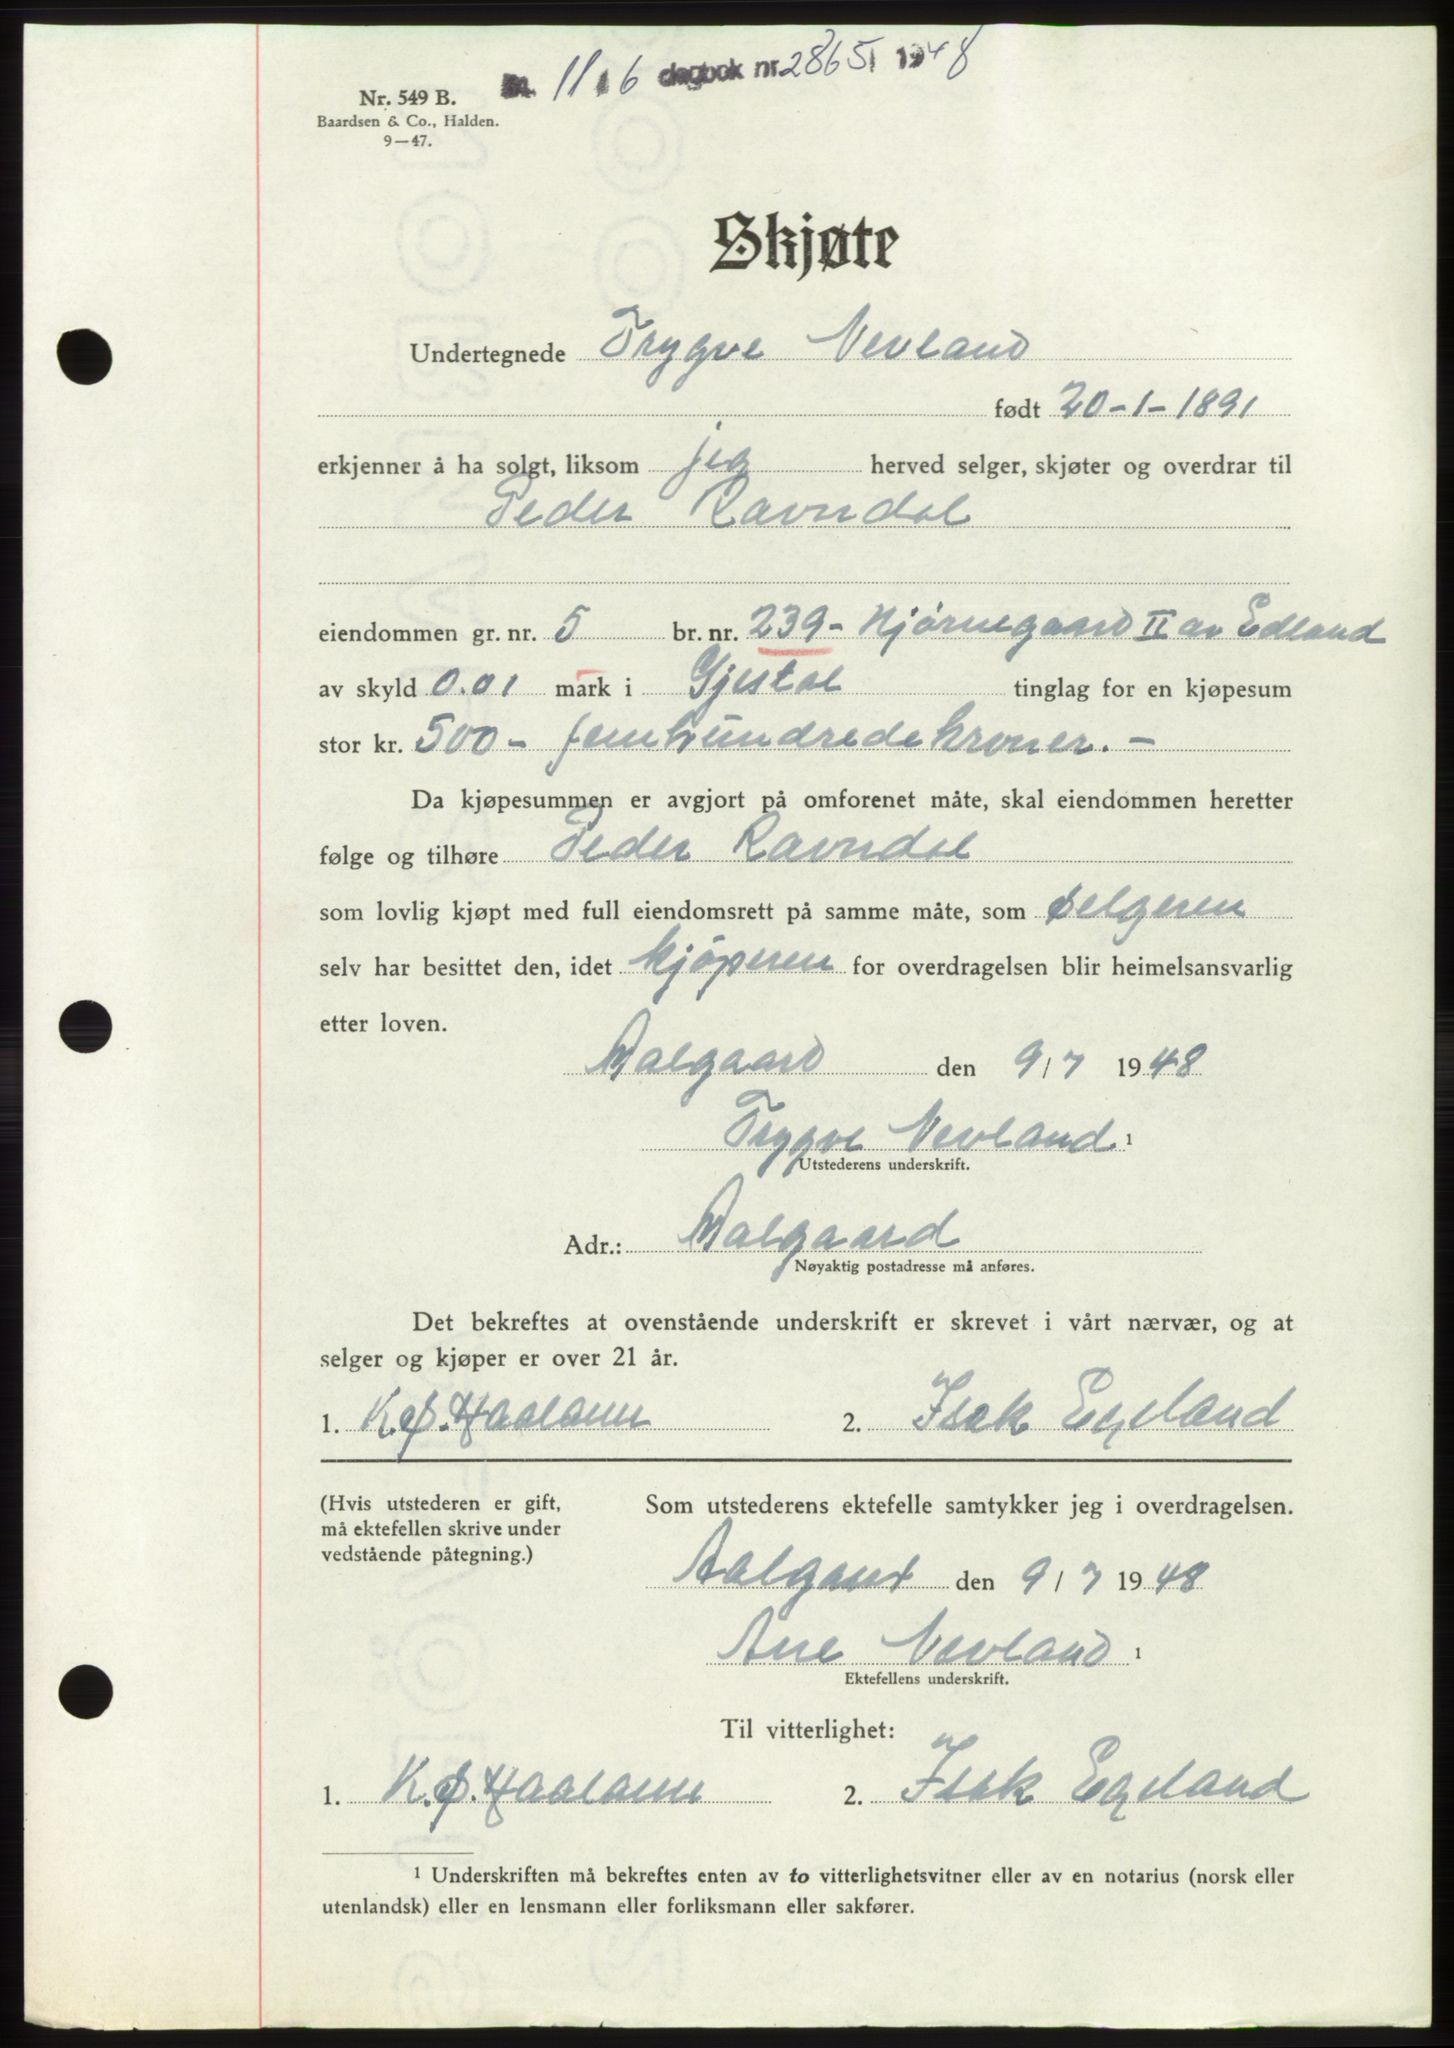 11/6 dagbok nr. 2865/1948
Nr. 549 B.
Baardsen & Co., Halden.
9—47.
Skjøte
Undertegnede Trygve Nevland
født 20-1-1891
erkjenner å ha solgt, liksom jeg herved selger, skjøter og overdrar til
Peder Ravndal
eiendommen gr. nr. 5 br. nr. 239 - Hjørnegaard II av Edland
av skyld 0.01 mark i Gjestal tinglag for en kjøpesum
stor kr. 500 - femhundredekroner. -
Da kjøpesummen er avgjort på omforenet måte, skal eiendommen heretter
følge og tilhøre Peder Ravndal
som lovlig kjøpt med full eiendomsrett på samme måte, som selgeren
selv har besittet den, idet kjøperen for overdragelsen blir heimelsansvarlig
etter loven.
Aalgaard den 9/7 1948
Trygve Nevland. 1
Utstederens underskrift.
Adr.: Aalgaard
Nøyaktig postadresse må anføres.
Det bekreftes at ovenstående underskrift er skrevet i vårt nærvær, og at
selger og kjøper er over 21 år.
1. K. Haaland 2. Isak Egeland
(Hvis utstederen er gift, Som utstederens ektefelle samtykker jeg i overdragelsen.
må ektefellen skrive under
vedstående påtegning.)
Aalgaard den 9/7 1948
Ane Nevland 1
Ektefellens underskrift.
Til vitterlighet:
1. K. Haaland 2. Isak Egeland
1 Underskriften må bekreftes enten av to vitterlighetsvitner eller av en notarius (norsk eller
utenlandsk) eller en lensmann eller forliksmann eller sakfører.